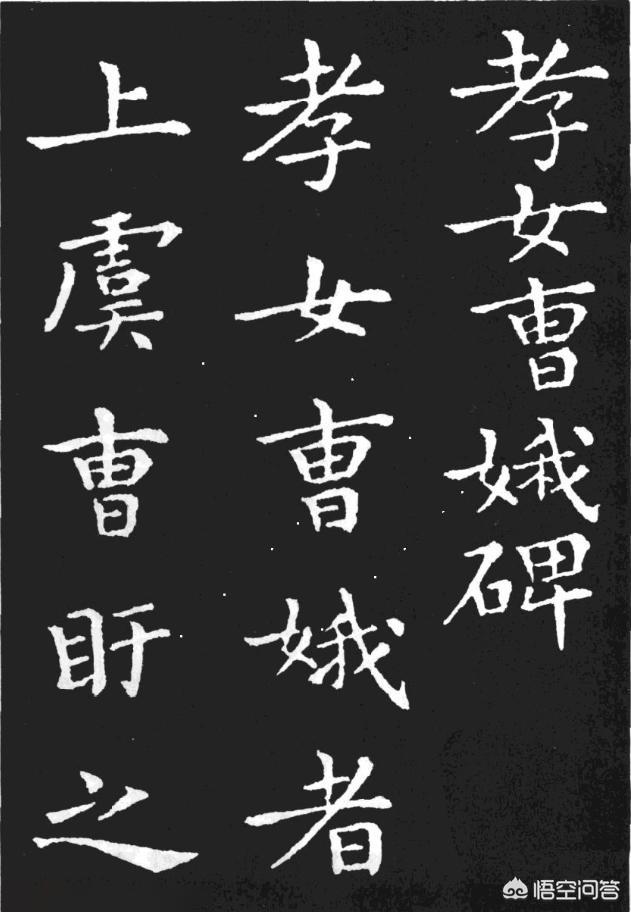 孝女曹娥碑
孝女曹娥者
上虞曹盱之
悟空问答